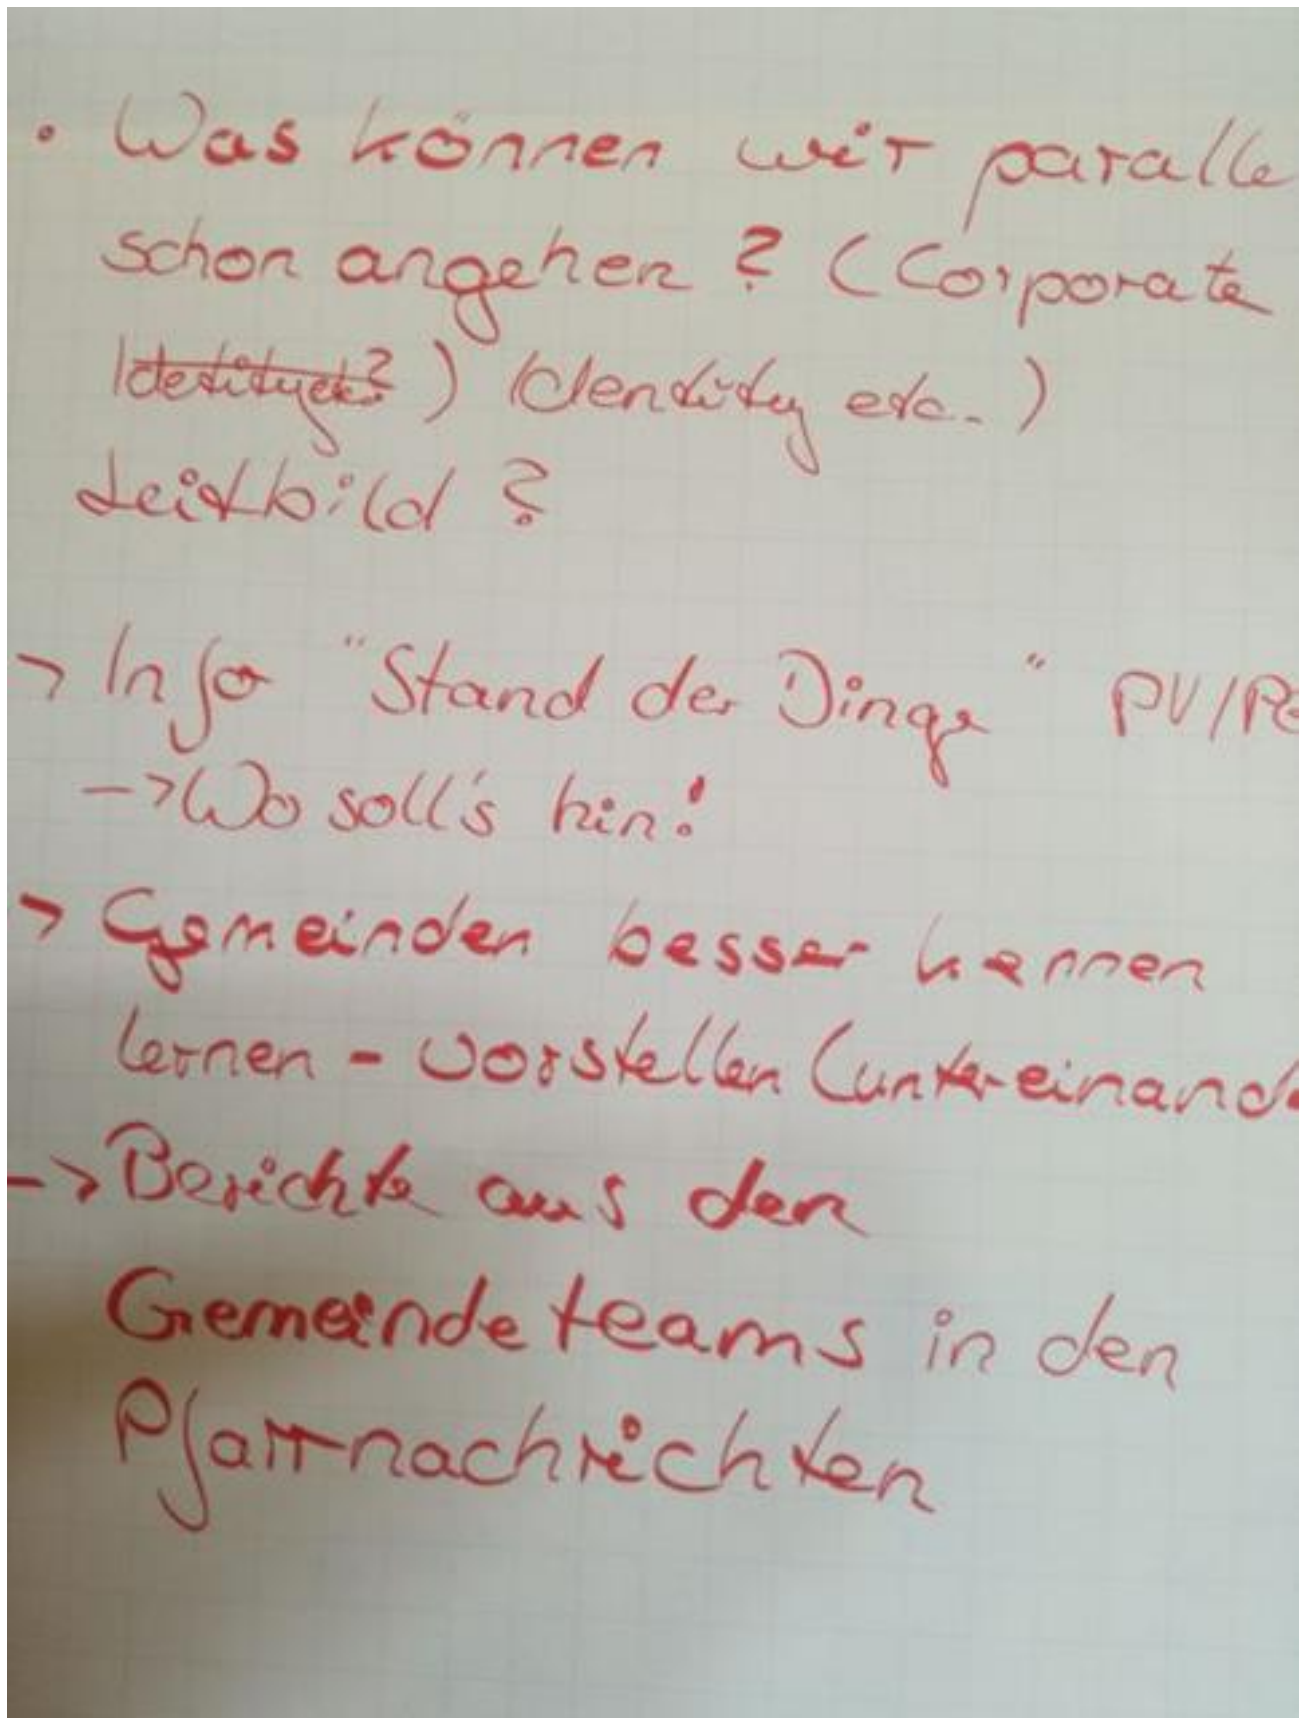 • Was können wir paralle
schon angehen? (Corporate
Idetityet?) Identity etc.)
Leitbild?
> Info "Stand der Dinge" PV/PG
-> Wo soll's hin!
> Gemeinden besser kennen
lernen - vorstellen (untereinande
-> Berichte aus den
Gemeindeteams in den
Pfarrnachrichten